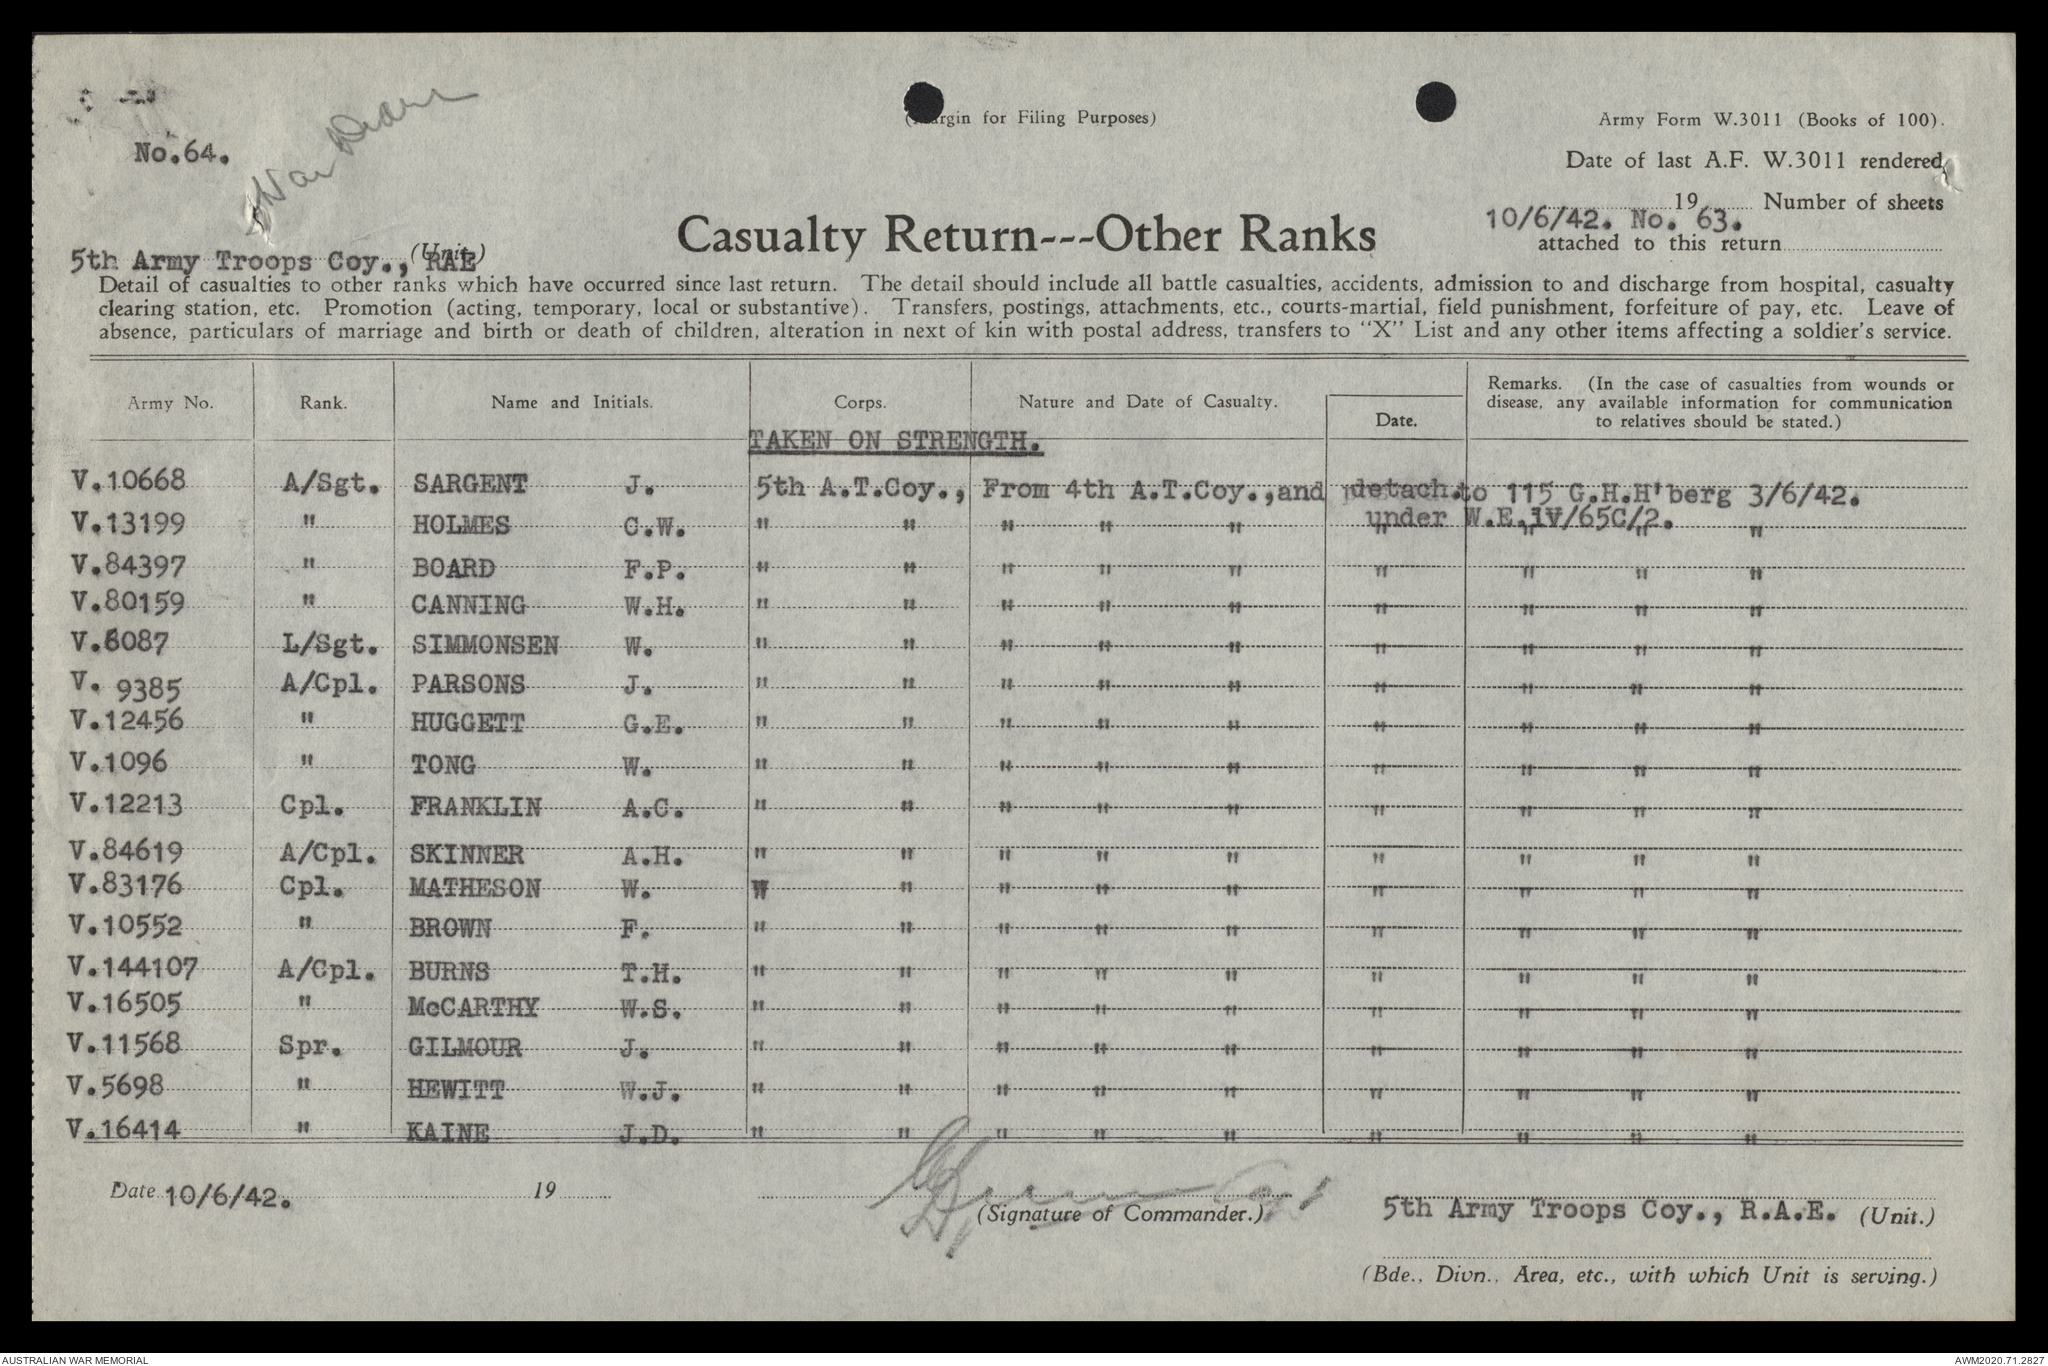 No.64.
War Diary
(Margin for Filing Purposes)
Army Form W.3011 (Books of 100).
Date of last A.F. W.3011 rendered
19 Number of sheets
10/6/42. No. 63.
attached to this return
Casualty Return---Other Ranks
5th Army Troops Coy., RAE (Unit.)
Detail of casualties to other ranks which have occurred since last return. The detail should include all battle casualties, accidents, admission to and discharge from hospital, casualty
clearing station, etc. Promotion (acting, temporary, local or substantive). Transfers, postings, attachments, etc., courts-martial, field punishment, forfeiture of pay, etc. Leave of
absence, particulars of marriage and birth or death of children, alteration in next of kin with postal address, transfers to "X" List and any other items affecting a soldier's service.
Army No. Rank. Name and Initials. Corps. Nature and Date of Casualty. Date. Remarks. (In the case of casualties from wounds or
disease, any available information for communication
to relatives should be stated.)
TAKEN ON STRENGTH.
V.10668 A/Sgt. SARGENT J. 5th A.T.Coy., From 4th A.T.Coy.,and detach.to 115 G.H.H'berg 3/6/42.
under W.E.IV/65C/2.
V.13199 " HOLMES C.W. " " " " " " " " "
V.84397 " BOARD F.P. " " " " " " " " "
V.80159 " CANNING W.H. " " " " " " " " "
V.6087 L/Sgt. SIMMONSEN W. " " " " " " " " "
V. 9385 A/Cpl. PARSONS J. " " " " " " " " "
V.12456 " HUGGETT G.E. " " " " " " " " "
V.1096 " TONG W. " " " " " " " " "
V.12213 Cpl. FRANKLIN A.C. " " " " " " " " "
V.84619 A/Cpl. SKINNER A.H. " " " " " " " " "
V.83176 Cpl. MATHESON W. " " " " " " " " "
V.10552 " BROWN F. " " " " " " " " "
V.144107 A/Cpl. BURNS T.H. " " " " " " " " "
V.16505 " McCARTHY W.S. " " " " " " " " "
V.11568 Spr. GILMOUR J. " " " " " " " " "
V.5698 " HEWITT W.J. " " " " " " " " "
V.16414 " KAINE J.D. " " " " " " " " "
Date 10/6/42. 19
Capt
(Signature of Commander.)
5th Army Troops Coy., R.A.E. (Unit.)
(Bde., Divn., Area, etc., with which Unit is serving.)
AUSTRALIAN WAR MEMORIAL
AWM2020.71.2827